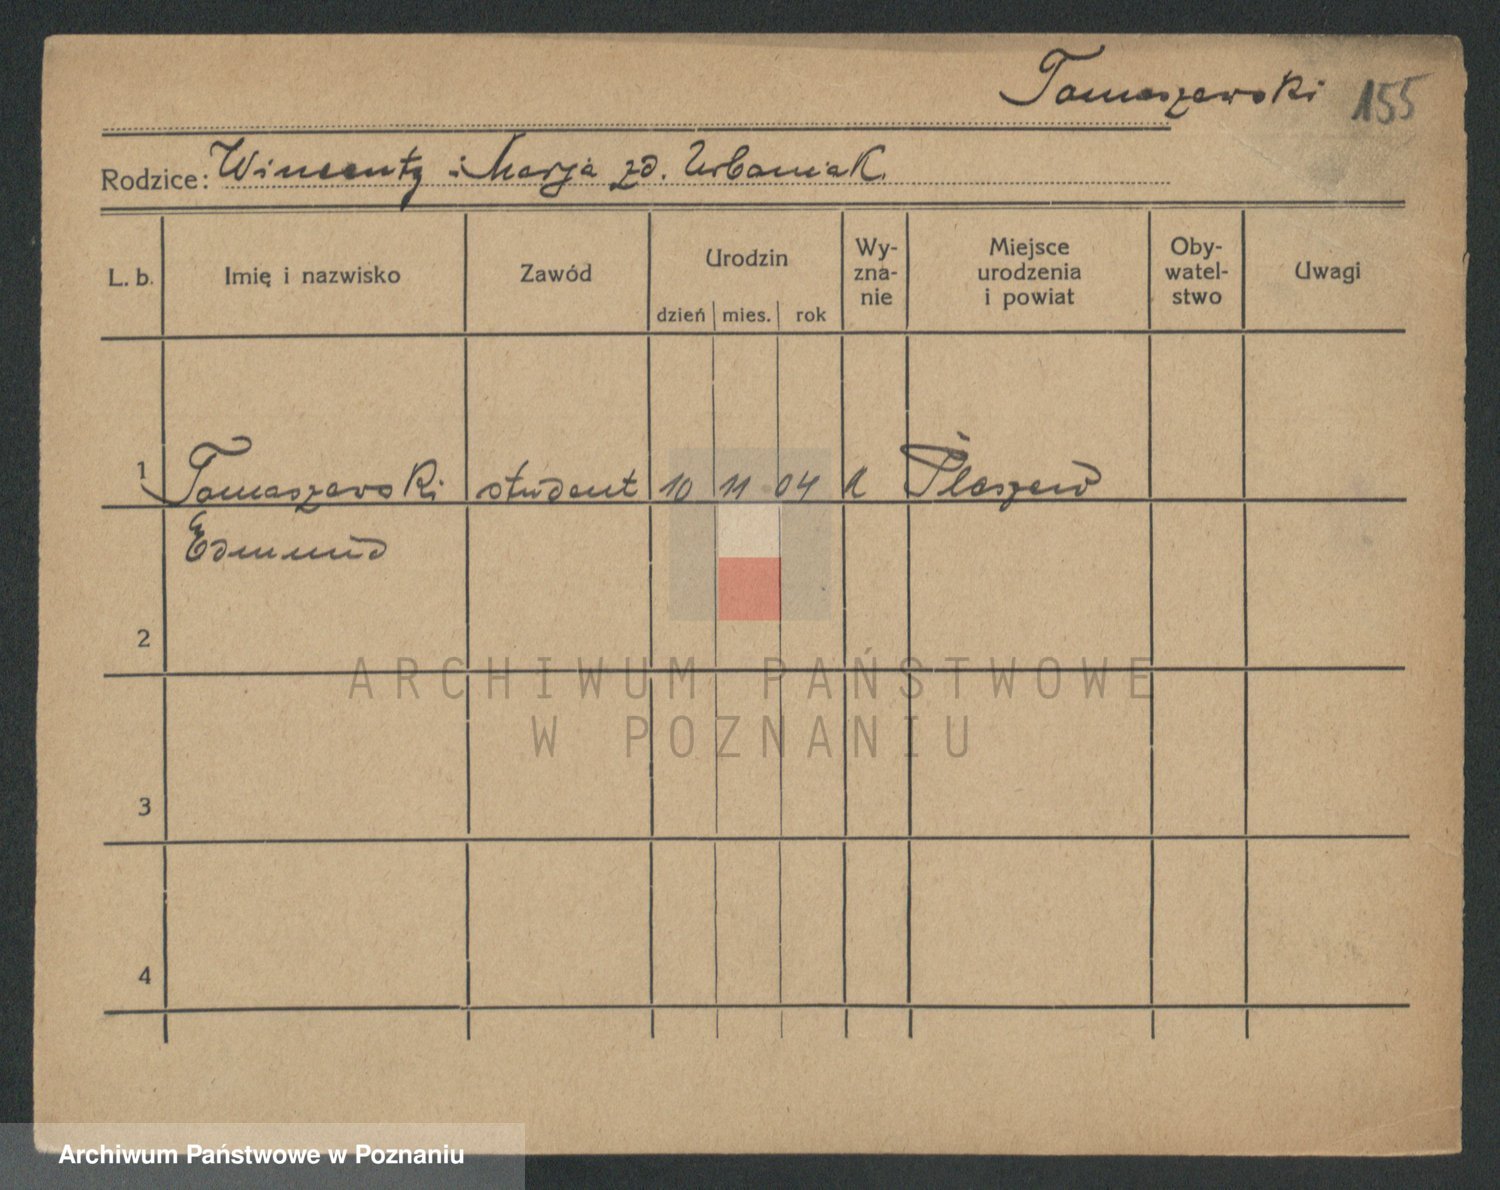 Tomaszewski 155
Rodzice: Wincenty i Marja zd. Urbaniak
L. b. Imię i nazwisko Zawód Urodzin dzień mies. rok Wy-zna-nie Miejsce urodzenia i powiat Oby-watel-stwo Uwagi
1 Tomaszewski student 10 11 04 k Pleszew
Edmund
2
ARCHIWUM PAŃSTWOWE
W POZNANIU
3
4
Archiwum Państwowe w Poznaniu